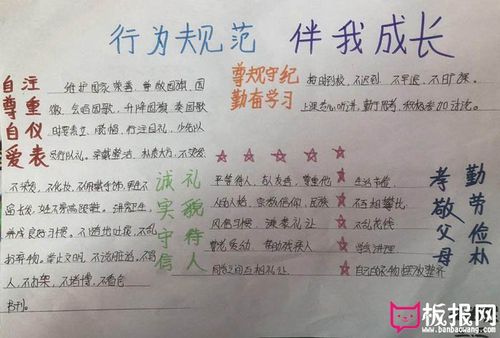 行为规范 伴我成长
自尊自爱
注重仪表
维护国家荣誉，尊敬国旗、国
徽，会唱国歌，升降国旗、奏国歌
时要肃立、脱帽、行注目礼，少先队
员行队礼。穿戴整洁、朴素大方，不烫发
不染发，不化妆，不佩戴首饰，男生不
留长发，女生不穿高跟鞋。讲究卫生，
养成良好习惯。不随地吐痰，不乱
扔弃物。举止文明，不说脏话，不骂
人，不打架，不赌博。不看色
书刊。
尊规守纪
勤奋学习
按时到校，不迟到，不早退，不旷课。
上课专心听讲，勤于思考，积极参加讨论。
诚实守信
礼貌待人
平等待人，与人友善，尊重他
人的人格、宗教信仰、民族
风俗习惯，谦恭礼让
尊老爱幼，帮助残疾人
同学之间互相礼让
生活节俭
不互相攀比
不乱花钱
学会料理
自己的衣物摆放整齐
孝敬父母
勤劳俭朴
板报网
www.banbaowang.com